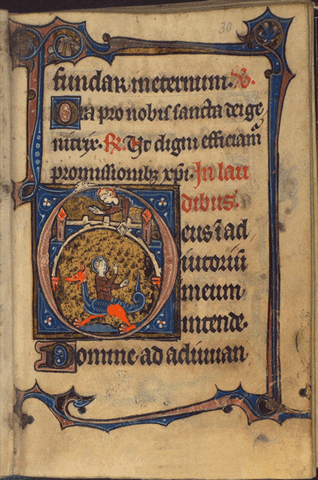 30
fundar in eternum. V.
Ora pro nobis sancta dei ge
nitrix. R. Ut digni efficiam
promissionib; xpi. In lau
dibus.
Deus i ad
iutoriū
meum
intende.
Domine ad adiuuan